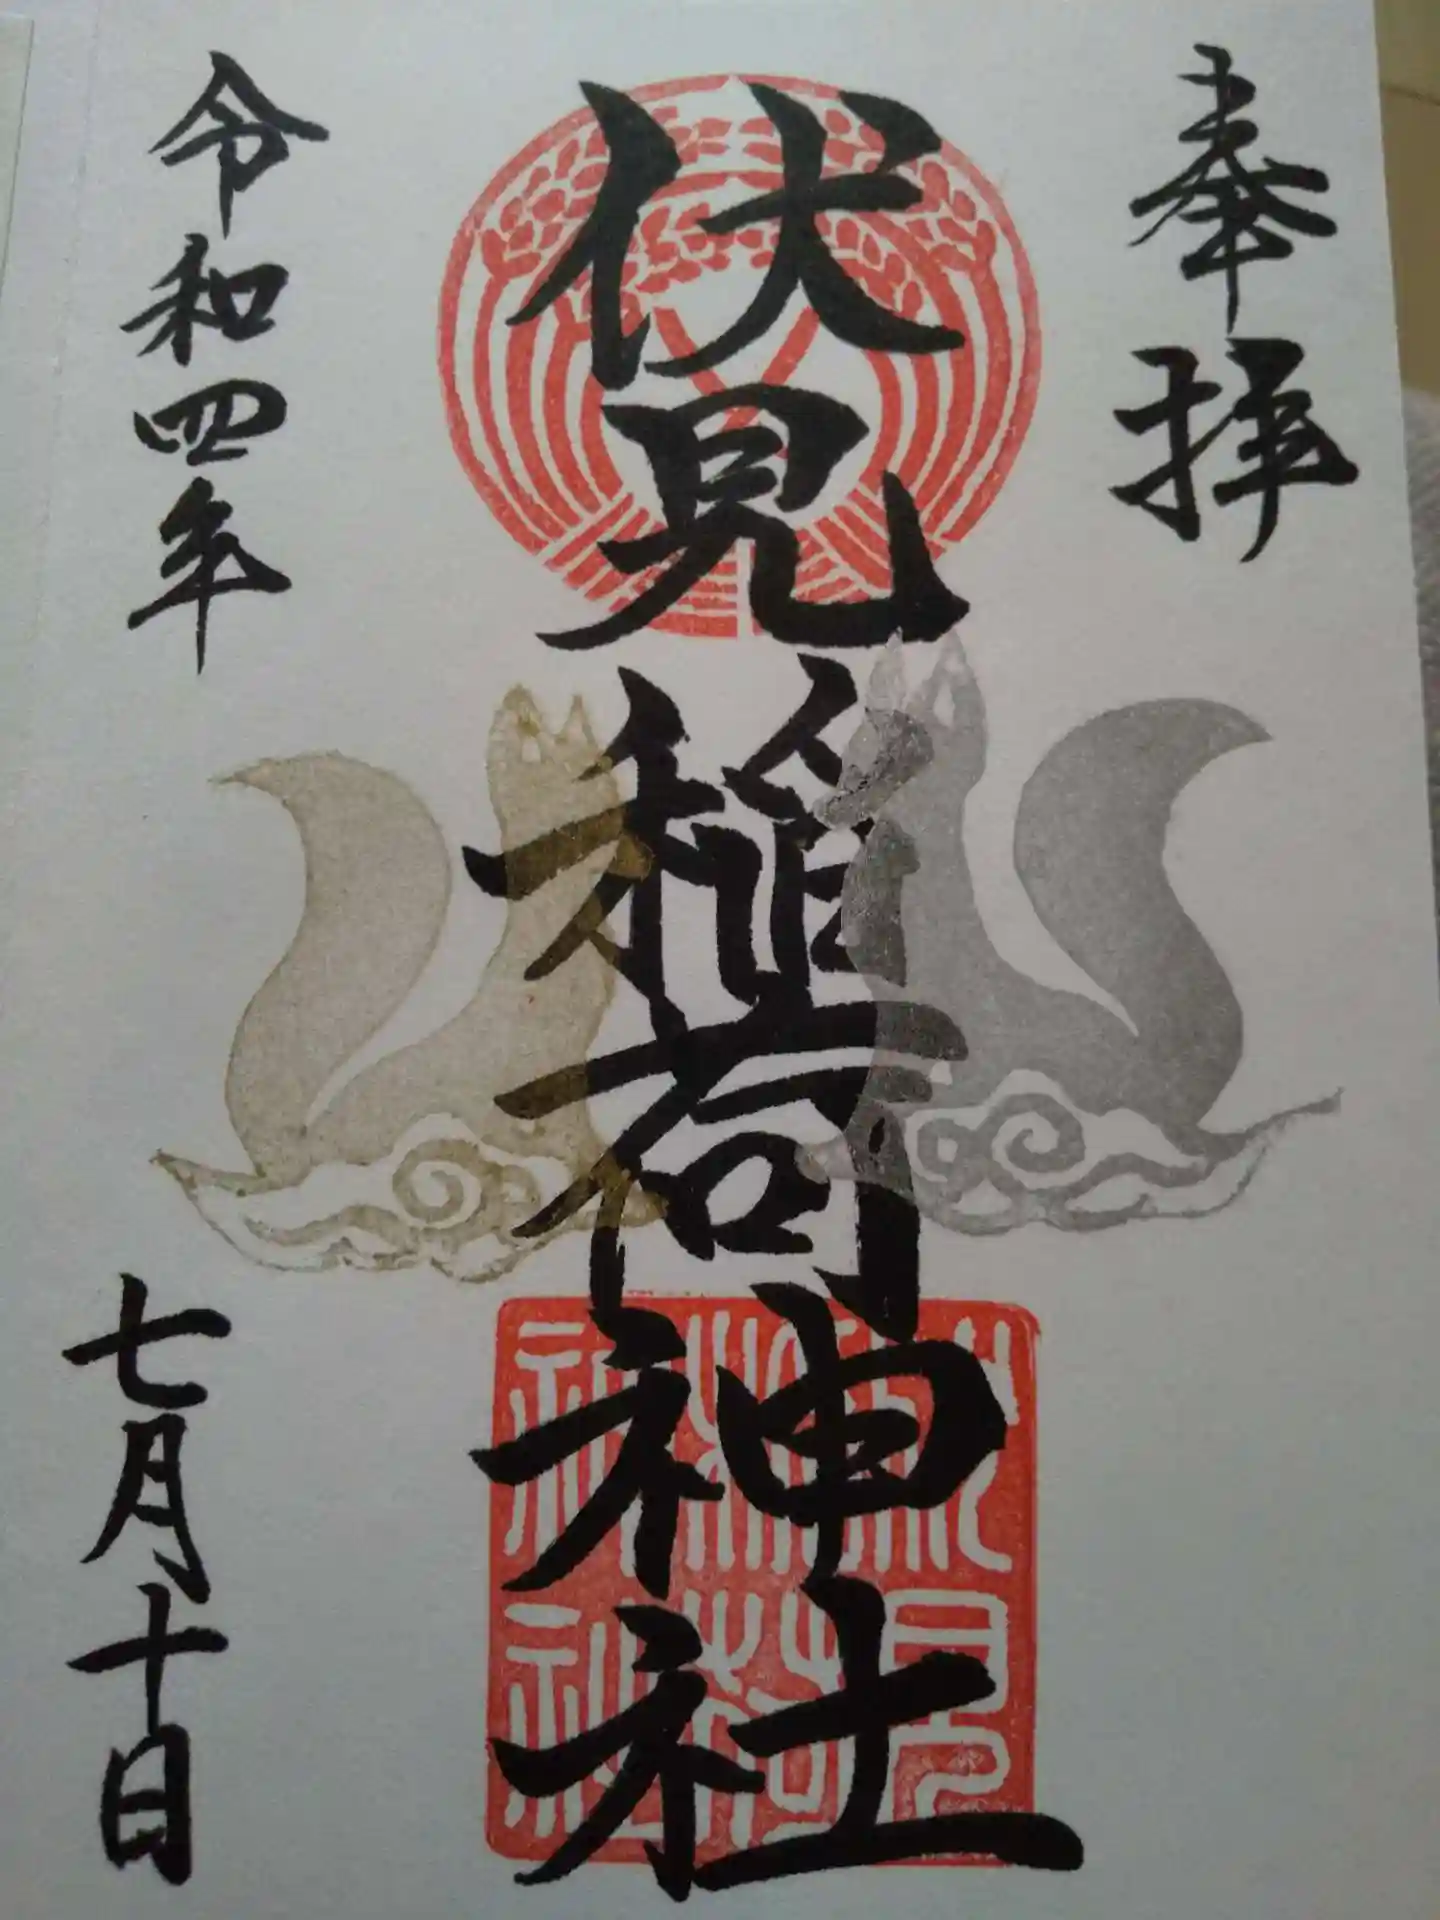 奉拝
伏見稲荷神社
令和四年
七月十日
伏見
稲荷
神社